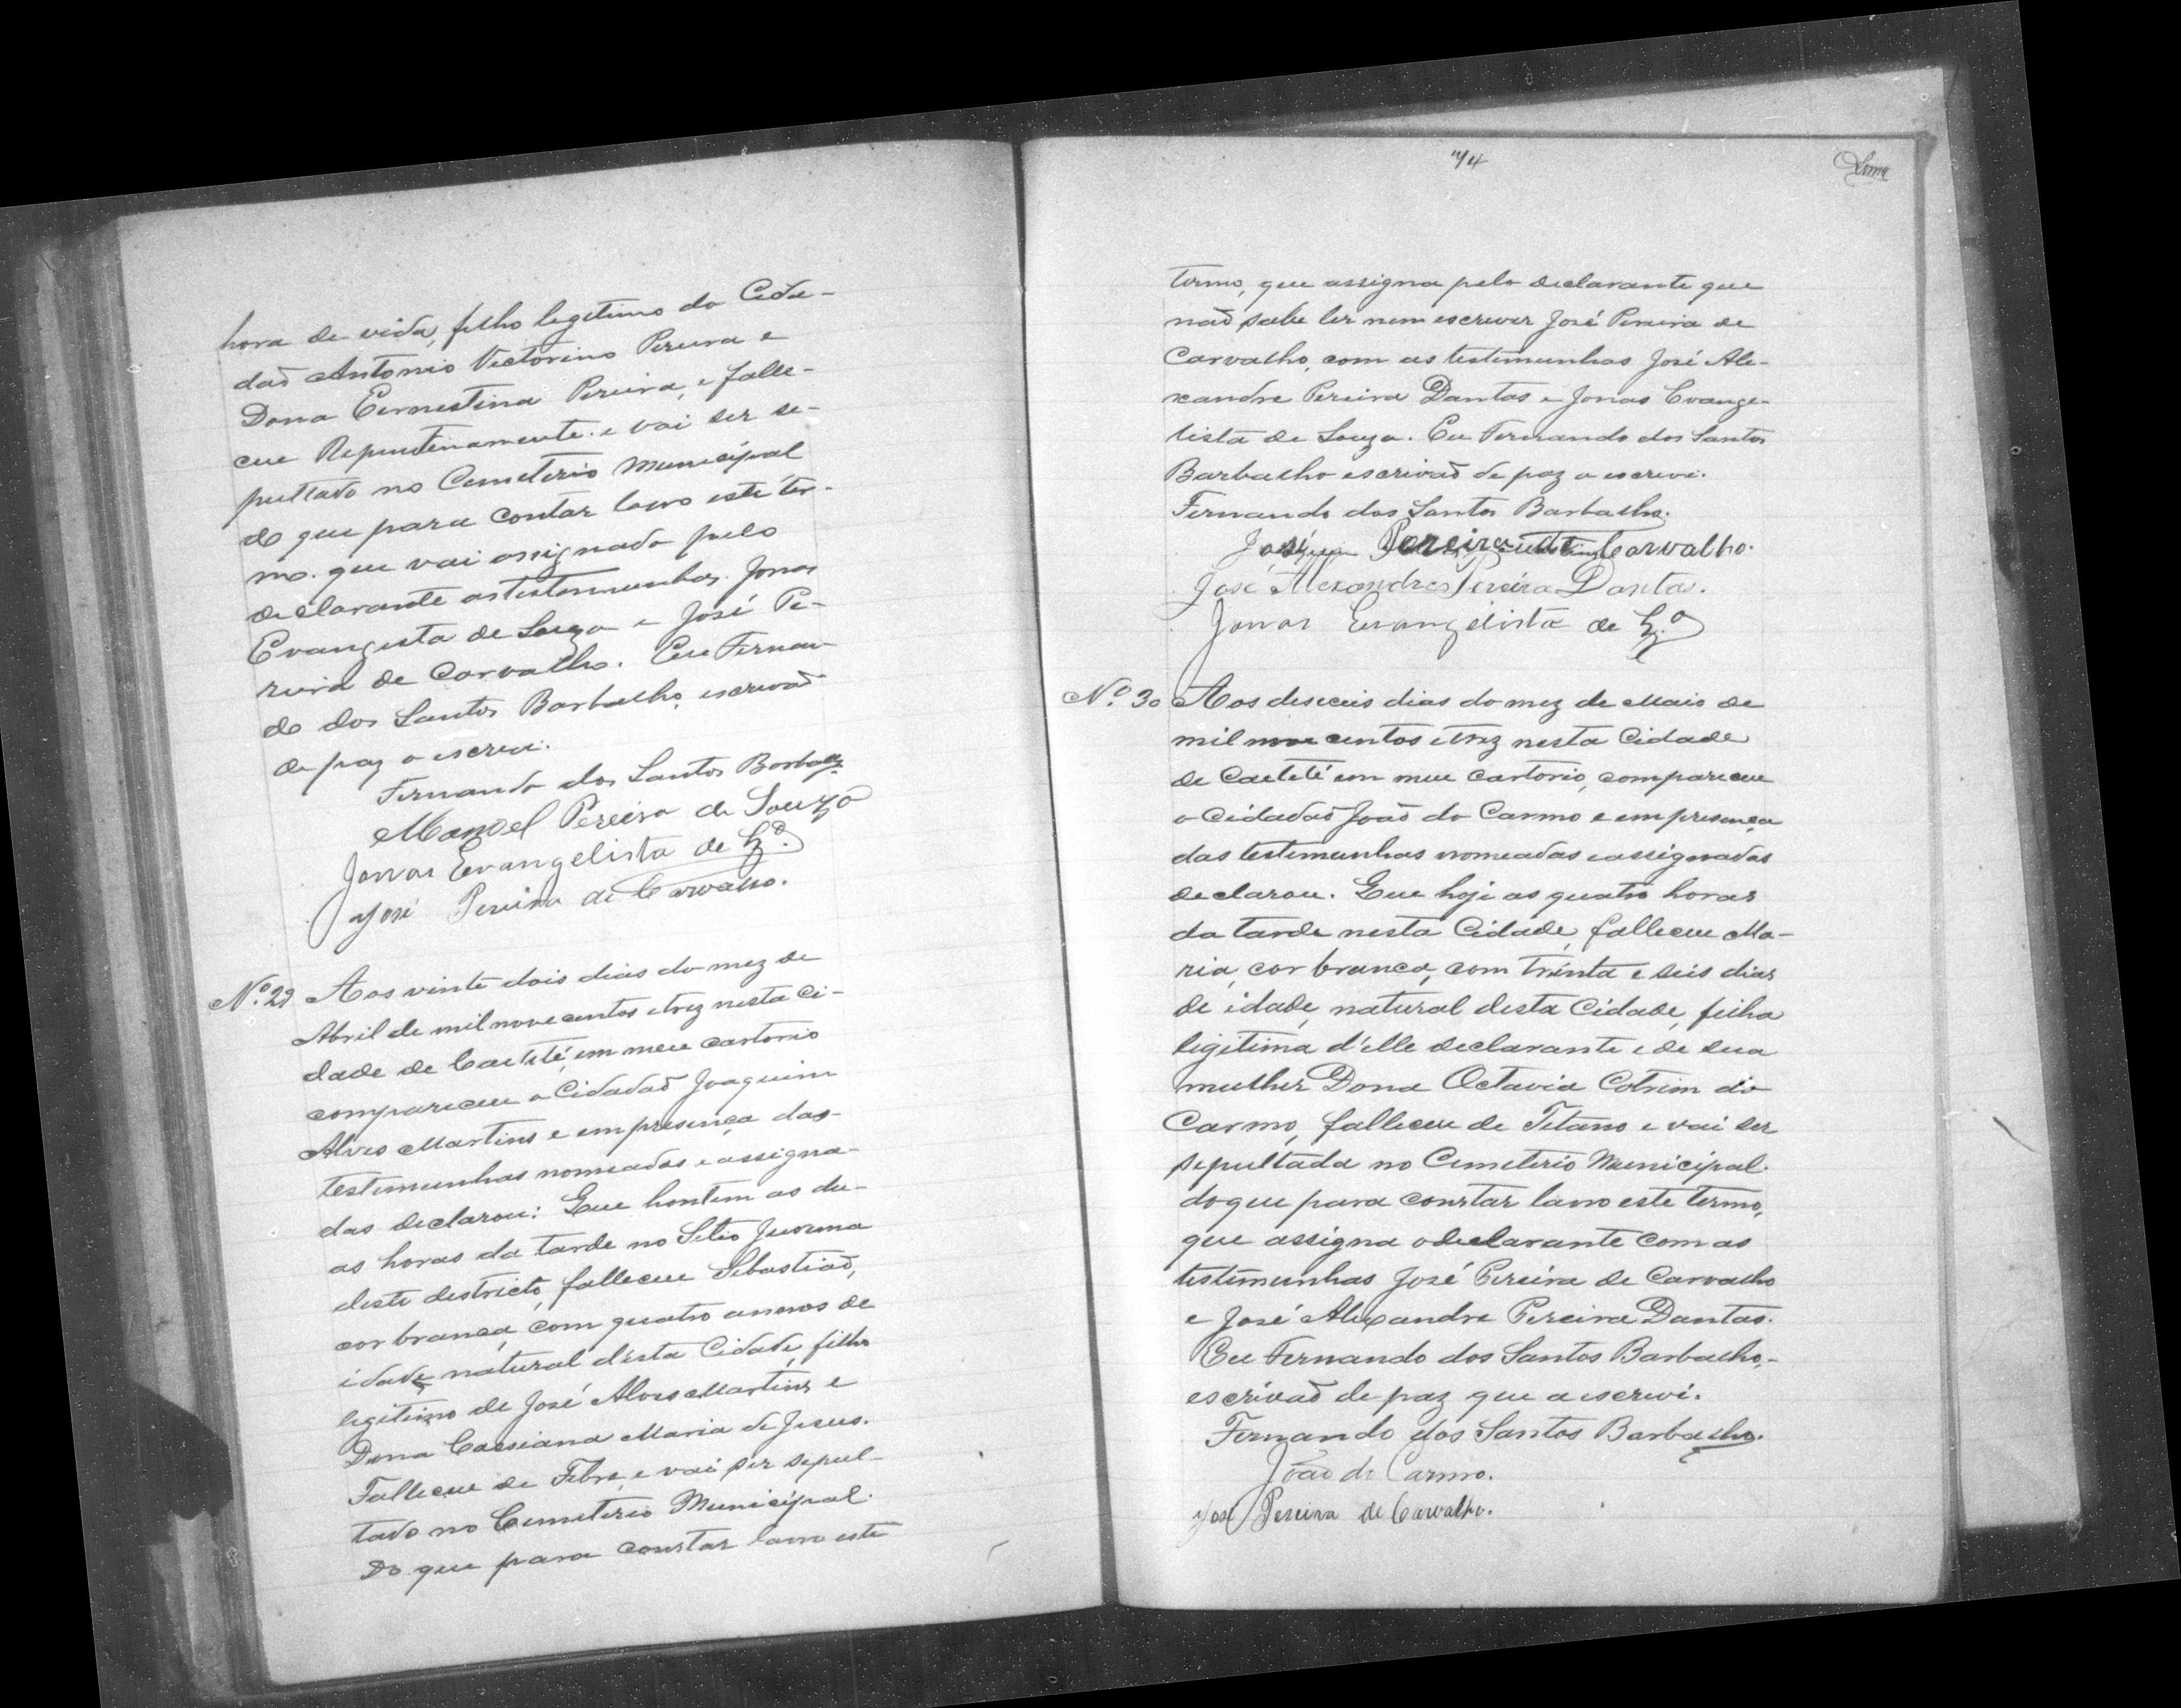 hora de vida, filho legitimo do Cida-
daõ Antonio Victorino Pereira e
Dona Eernestina Pereira, e falle-
ceu Repentinamente. e vai ser se-
pultado no Cemeterio Municipal
do que para contar lavro este ter-
mo. que vai assignado pelo
declarante as testemunhas Jonas
Evangista de Souza e José Pe-
reira de Carvalho. Eu Fernan-
do dos Santos Barbalho, escrivaõ
de paz o escrevi.
Fernando dos Santos Barbalho
Manoel Pereira de Souza
Jonas Evangelista de Sz.ª
José Pereira de Carvalho.
Nº. 29 Aos vinte dois dias do mez de
Abril de mil nove centos e trez nesta Ci-
dade de Caeteté, em meu cartorio
compareceu o Cidadaõ Joaquim
Alves Martins e em presença das
testemunhas nomeadas e assigna-
das declarou: Que hontem as du-
as horas da tarde no Sitio Jurema
deste destricto, falleceu Sebastiaõ,
cor branca, com quatro annos de
idade natural desta Cidade, filho
legitimo de José Alves Martins e
Dona Cassiana Maria de Jesus.
Falleceu de Febre, e vai ser sepul-
tado no Cemeterio Municipal.
Do que para constar lavro este
74
Lima
termo, que assigna pelo declarante que
naõ sabe ler nem escrever José Pereira de
Carvalho, com as testemunhas José Ale-
xandre Pereira Dantas e Jonas Evange-
lista de Souza. Eu Fernando dos Santos
Barbalho escrivaõ de paz o escrevi.
Fernando dos Santos Barbalho.
José Pereira de Carvalho.
José Alexandre Pereira Dantas.
Jonas Evangelista de Sz.ª
Nº. 30 Aos deseceis dias do mez de Maio de
mil nove centos e trez nesta Cidade
de Caeteté em meu cartorio, compareceu
o Cidadaõ Joaõ do Carmo e em presença
das testemunhas nomeadas e assignadas
declarou. Que hoje as quatro horas
da tarde nesta Cidade, falleceu Ma-
ria, cor branca, com trinta e seis dias
de idade, natural desta Cidade, filha
legitima d'elle declarante e de sua
mulher Dona Octavia Cotrim do
Carmo, falleceu de Tetano e vai ser
sepultada no Cemeterio Municipal.
do que para constar lavro este termo,
que assigna o declarante com as
testemunhas José Pereira de Carvalho
e José Alexandre Pereira Dantas.
Eu Fernando dos Santos Barbalho,
escrivaõ de paz que o escrevi.
Fernando dos Santos Barbalho.
João do Carmo.
José Pereira de Carvalho.